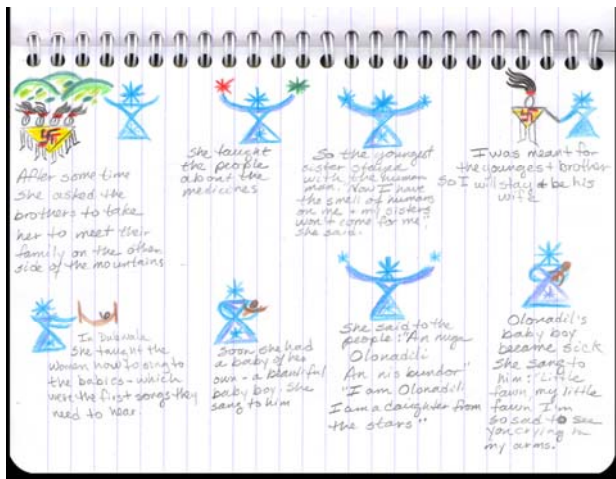 After some time
she asked the
brothers to take
her to meet their
family on the other
side of the mountains
She taught
the people
about the
medicines
So the youngest
sister stayed
with the human
man. Now I have
the smell of humans
on me & my sisters
won't come for me,
she said.
I was meant for
the youngest brother
So I will stay & be his
wife
In
She taught the
women how to sing to
the babies - which
were the first songs they
need to hear.
Soon she had
a baby of her
own - a beautiful
baby boy. She
sang to him
She said to the
people: "An nuga
Olonadili
An nis bundor"
"I am Olonadili
I am a daughter from
the stars"
Olonadil's
baby boy
became sick
She sang to
him: "Little
fawn, my little
fawn I'm
so sad to see
you crying in
my arms.